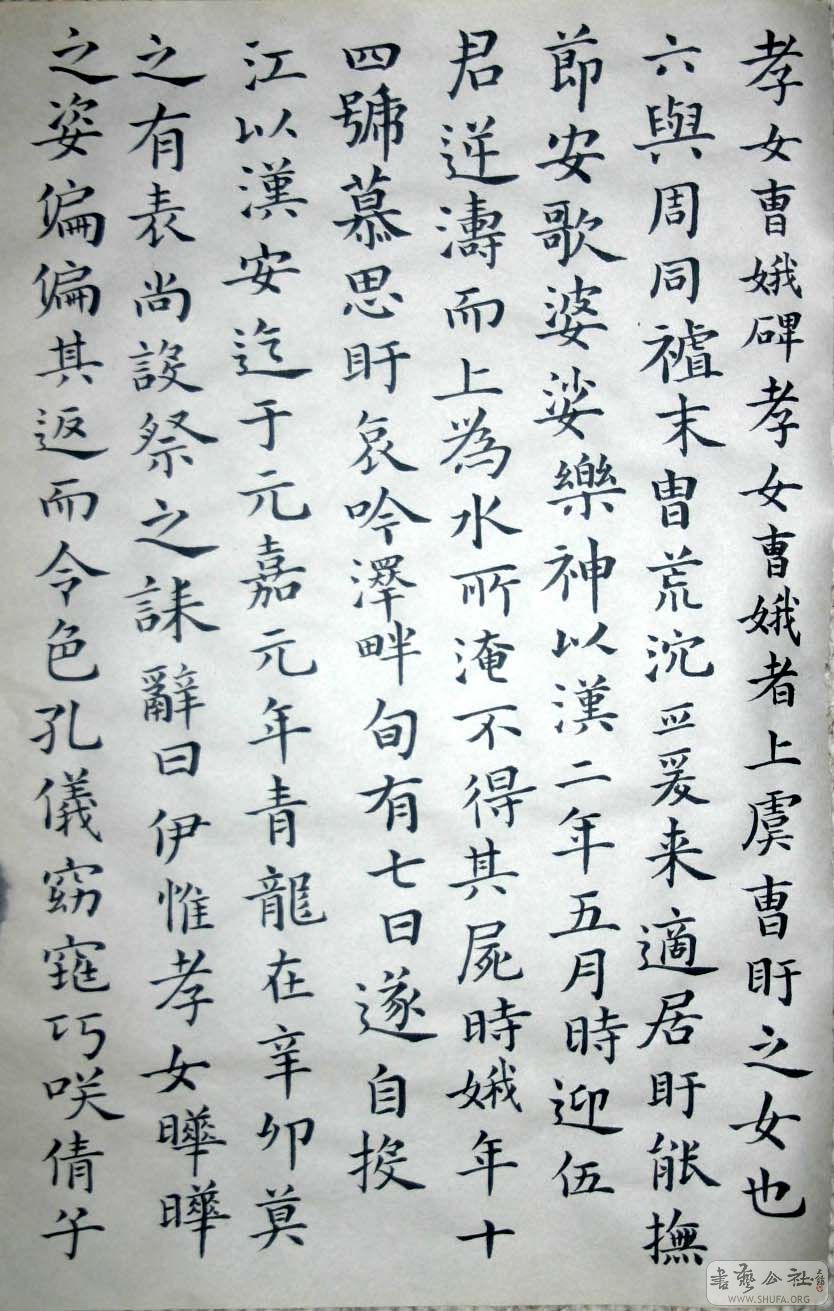 孝女曺娥碑孝女曺娥者上虞曺盱之女也
六與周同禇末胄荒沉爰来適居盱能撫
節安歌婆娑樂神以漢二年五月時迎伍
君逆濤而上為水所淹不得其屍時娥年十
四號慕思盱哀吟澤畔旬有七日遂自投
江以漢安迄于元嘉元年青龍在辛卯莫
之有表尚設祭之誄辭曰伊惟孝女曄曄
之姿偏偏其返而令色孔儀窈窕巧咲倩兮
書藝公社
WWW.SHUFA.ORG